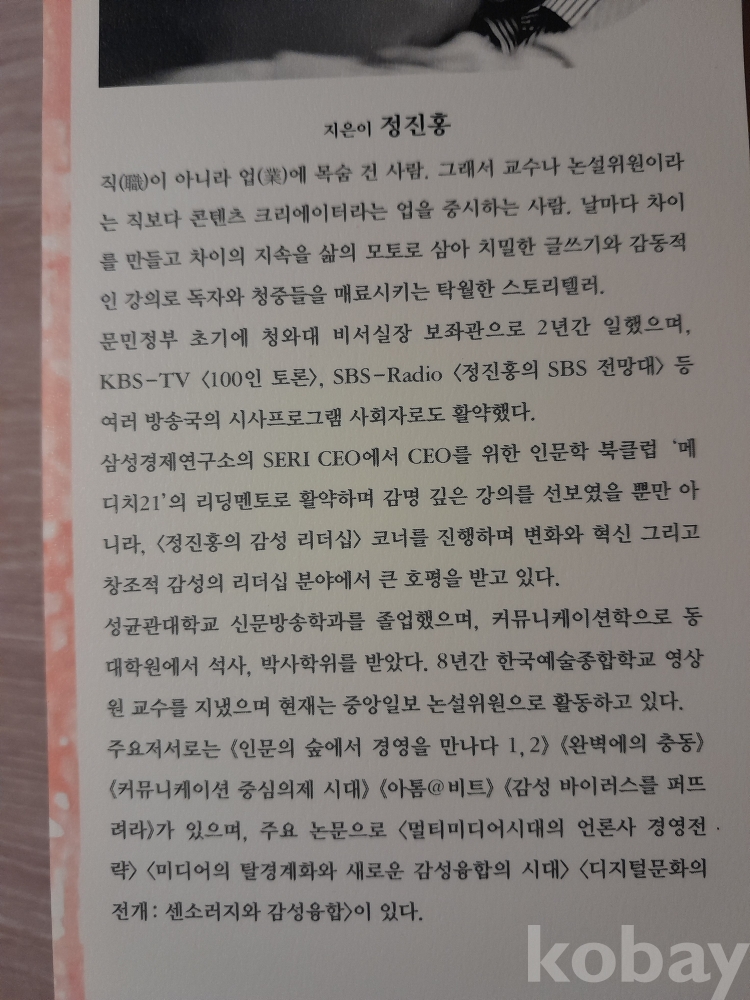 지은이 정진홍
직(職)이 아니라 업(業)에 목숨 건 사람. 그래서 교수나 논설위원이라
는 직보다 콘텐츠 크리에이터라는 업을 중시하는 사람. 날마다 차이
를 만들고 차이의 지속을 삶의 모토로 삼아 치밀한 글쓰기와 감동적
인 강의로 독자와 청중들을 매료시키는 탁월한 스토리텔러.
문민정부 초기에 청와대 비서실장 보좌관으로 2년간 일했으며,
KBS-TV 〈100인 토론〉, SBS-Radio 〈정진홍의 SBS 전망대〉 등
여러 방송국의 시사프로그램 사회자로도 활약했다.
삼성경제연구소의 SERI CEO에서 CEO를 위한 인문학 북클럽 ‘메
디치21’의 리딩멘토로 활약하며 감명 깊은 강의를 선보였을 뿐만 아
니라, 〈정진홍의 감성 리더십〉 코너를 진행하며 변화와 혁신 그리고
창조적 감성의 리더십 분야에서 큰 호평을 받고 있다.
성균관대학교 신문방송학과를 졸업했으며, 커뮤니케이션학으로 동
대학원에서 석사, 박사학위를 받았다. 8년간 한국예술종합학교 영상
원 교수를 지냈으며 현재는 중앙일보 논설위원으로 활동하고 있다.
주요저서로는 《인문의 숲에서 경영을 만나다 1, 2》 《완벽에의 충동》
《커뮤니케이션 중심의제 시대》 《아톰@비트》 《감성 바이러스를 퍼뜨
려라》가 있으며, 주요 논문으로 〈멀티미디어시대의 언론사 경영전
략〉 〈미디어의 탈경계화와 새로운 감성융합의 시대〉 〈디지털문화의
전개: 센소러지와 감성융합〉이 있다.
kobay